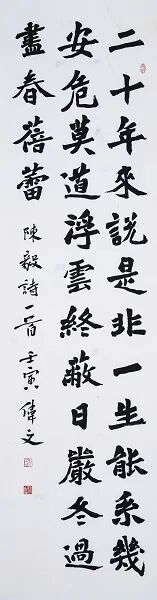 二十年來說是非一生能系幾
安危莫道浮雲終蔽日嚴冬過
盡春蓓蕾
陳毅詩一首壬寅偉文